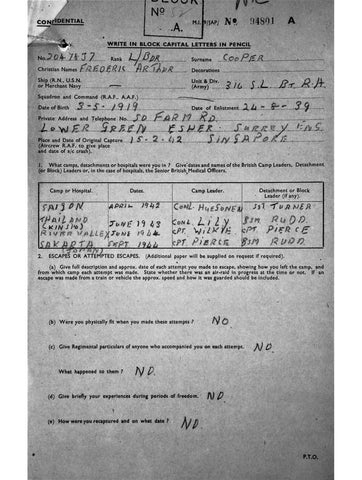 BLOCK
A.
CONFIDENTIAL
M.I.9/JAP/ No 94801 A
WRITE IN BLOCK CAPITAL LETTERS IN PENCIL
No. Rank L/BDR Surname COOPER
Christian Names FREDERIC ARTHUR Decorations
Ship (R.N., U.S.N. or Merchant Navy) - Unit & Div. (Army) 316 S.L. BT R.A.
Squadron and Command (R.A.F., A.A.F.)
Date of Birth 3-5-1919 Date of Enlistment 24-8-39
Private Address and Telephone No. 50 FARM RD.
LOWER GREEN ESHER SURREY ENG.
Place and Date of Original Capture 15.2.42 SINGAPORE
(Aircrew R.A.F. to give place and date of a/c crash).
1. What camps, detachments or hospitals were you in ? Give dates and names of the British Camp Leaders, Detachment (or Block) Leaders or, in the case of hospitals, the Senior British Medical Officers.
Camp or Hospital. Dates. Camp Leader. Detachment or Block Leader (if any).
SAIGON APRIL 1942 SGT TURNER
THAILAND JUNE 1943 LILY BSM RUDD.
RIVER VALLEY JUNE 1944 CPT. WILKIE CPT. PIERCE
SAKATA SEPT 1944 CPT. PIERCE BSM RUDD.
2. ESCAPES OR ATTEMPTED ESCAPES. (Additional paper will be supplied on request if required).
(a) Give full description and approx. date of each attempt you made to escape, showing how you left the camp, and from which camp each attempt was made. State whether there was an air-raid in progress at the time or not. If an escape was made from a train or vehicle the approx. speed and how it was guarded should be included.
(b) Were you physically fit when you made these attempts ? NO
(c) Give Regimental particulars of anyone who accompanied you on each attempt. NO.
What happened to them ? NO.
(d) Give briefly your experiences during periods of freedom. NO.
(e) How were you recaptured and on what date ? NO.
P.T.O.